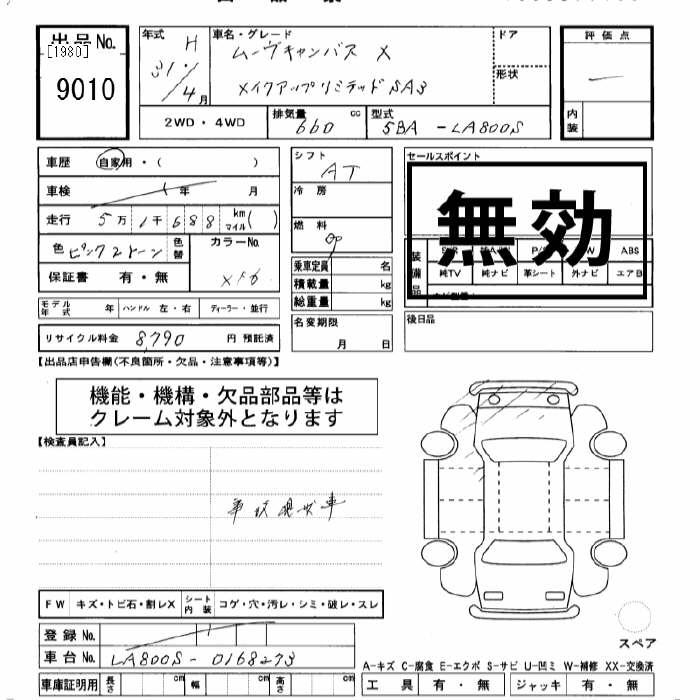 出品No.
[1980]
9010
年式 H
31.
4月
車名・グレード
ムーヴキャンバス X
メイクアップリミテッド SA3
ドア
形状
評価点
内装
2WD・4WD
排気量 660 cc
型式 5BA-LA800S
車歴 自家用・( )
車検 年 月
走行 5万1千688 km マイル( )
色 ピンク2トーン 色替
カラーNo.
保証書 有・無
モデル年式 年 ハンドル 左・右 ディーラー・並行
リサイクル料金 8,790 円 預託済
シフト AT
冷房
燃料
乗車定員 名
積載量 kg
総重量 kg
名変期限
月 日
セールスポイント
無効
装備品
ABS
純TV 純ナビ 革シート 外ナビ エアB
後日品
【出品店申告欄(不良箇所・欠品・注意事項等)】
機能・機構・欠品部品等は
クレーム対象外となります
【検査員記入】
事故現状車
FW キズ・トビ石・割レX シート内装 コゲ・穴・汚レ・シミ・破レ・スレ
登録No.
車台No. LA800S-0168273
車庫証明用 長さ cm 幅 cm 高さ cm
スペア
A-キズ C-腐食 E-エクボ S-サビ U-凹ミ W-補修 XX-交換済
工具 有・無 ジャッキ 有・無